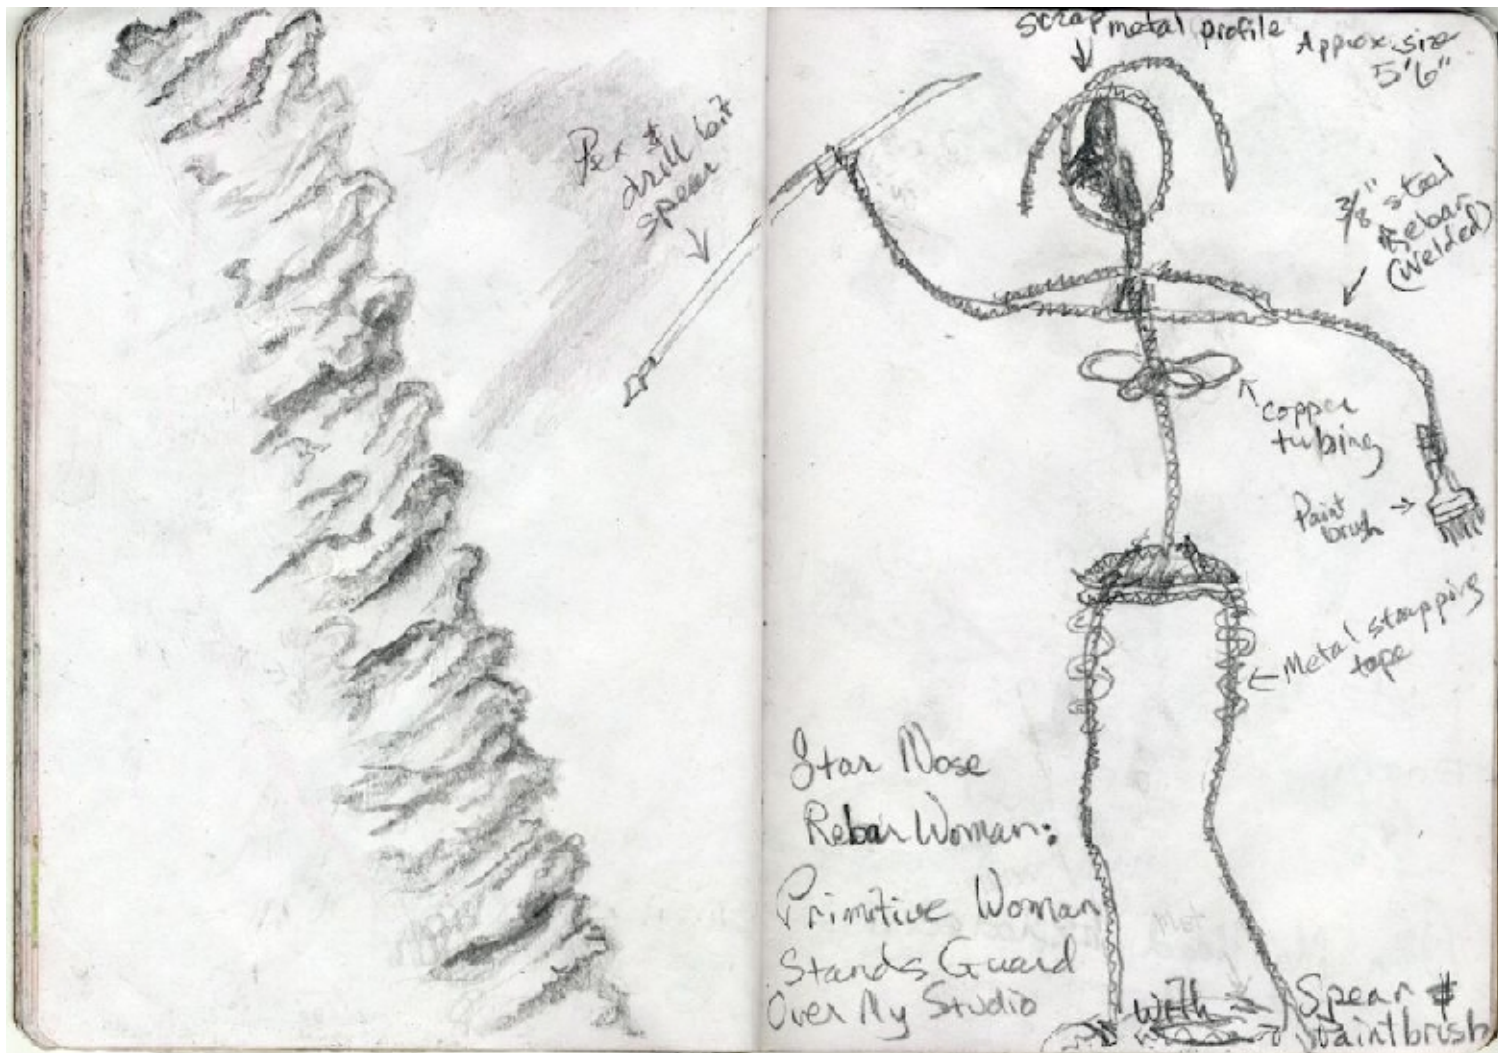 scrap metal profile
Approx. size
5'6"
Pex &
drill bit
spear
3/8" steel
Rebar
(welded)
copper
tubing
Paint
brush
Metal strapping
tape
Star Nose
Rebar Woman:
Primitive Woman
Stands Guard
Over My Studio
with Spear &
Paintbrush